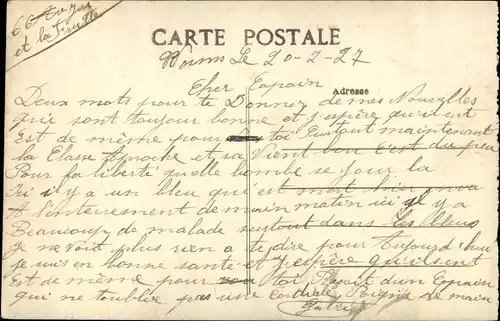 et la
CARTE POSTALE
Worms Le 20-2-27
Cher Copain
Adresse
Deux mots pour te Donner de mes Nouvelles
qui sont toujour bonne et j'espère qu'il en
Est de même pour toi Surtout maintenant
la Classe Aproche et sa Vient bon c'est du peu
Pour la liberté quelle bombe se jour la
Ici il y a un bleu qui est mort hier on va
A l'enterrement demain matin ici il y a
Beaucoup de malade surtout dans les bleus
Je ne Voit plus rien a te dire pour Aujourd'hui
je suis en bonne santé et J'espère qu'ils en
Est de même pour toi Reçoit d'un Copain
qui ne t'oublie pas une Cordiale Poigné de main